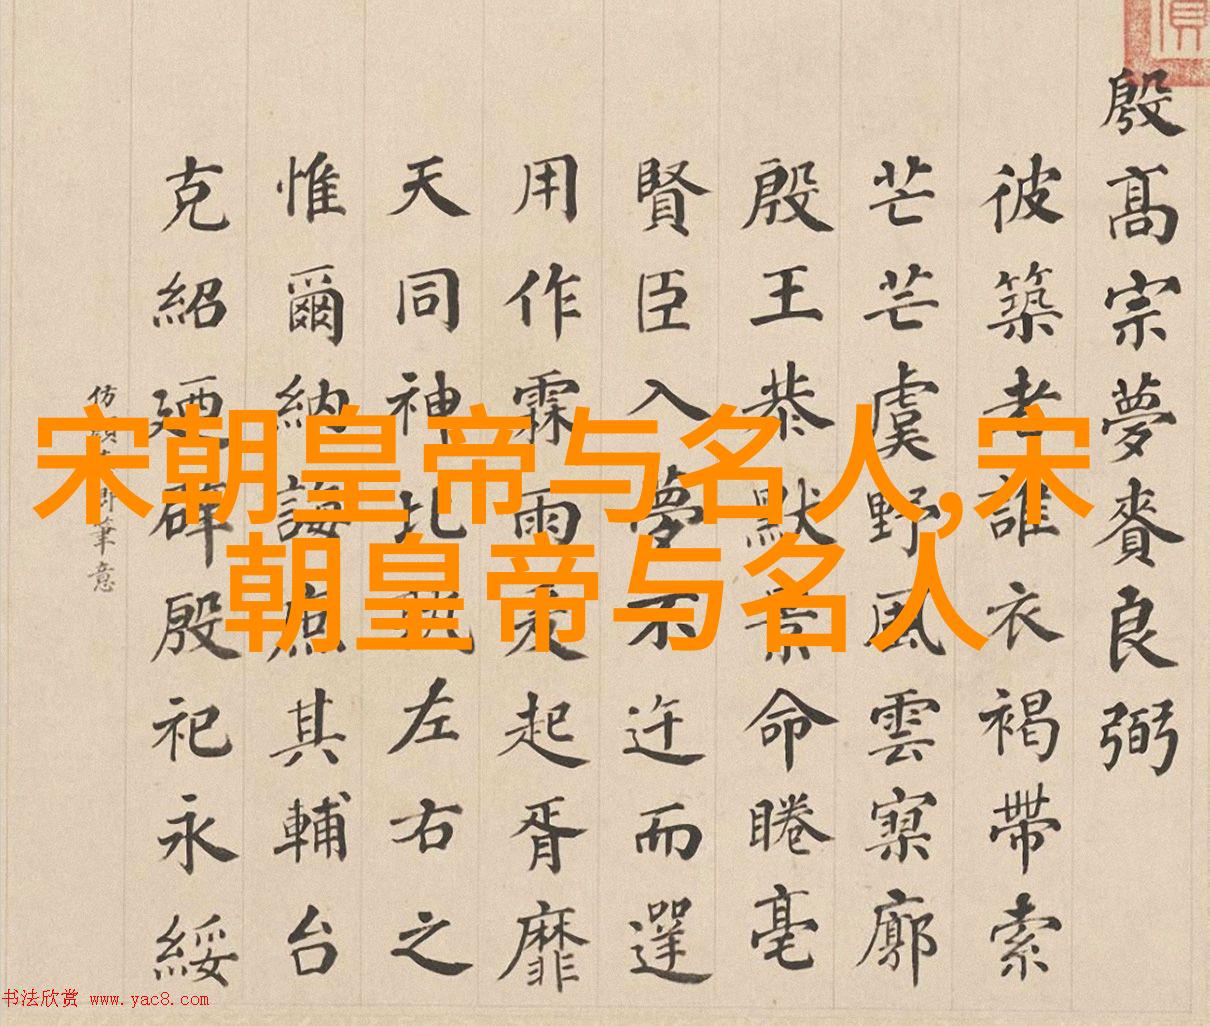 殷髙宗夢賚良弼
彼築者誰衣褐帶索
芒芒虞野風雲寥廓
殷王恭默景命睠亳
賢臣入夢不迕而遻
用作霖雨爰起胥靡
天同神比左右之
惟爾納誨庶其輔台
克紹廼辟殷祀永綏
仿卿筆意
宋朝皇帝与名人,宋
朝皇帝与名人
书法欣赏 www.yac8.com